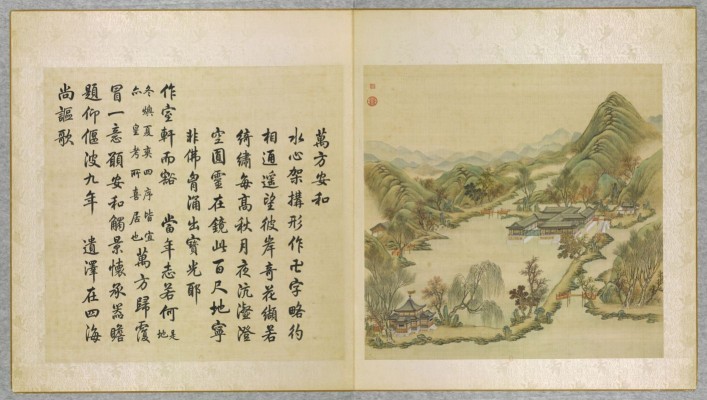 萬方安和
水心架構形作卍字略彴
相通遥望彼岸奇花缬若
綺繡每髙秋月夜沆瀣澄
空圓靈在鏡此百尺地寧
非佛胷涌出寶光耶
作室軒而豁 當年志若何是地
冬燠夏爽四序皆宜亦 皇考所喜居也萬方歸覆
冒一意願安和觸景懷承器瞻
題仰偃波九年 遺澤在四海
尚謳歌